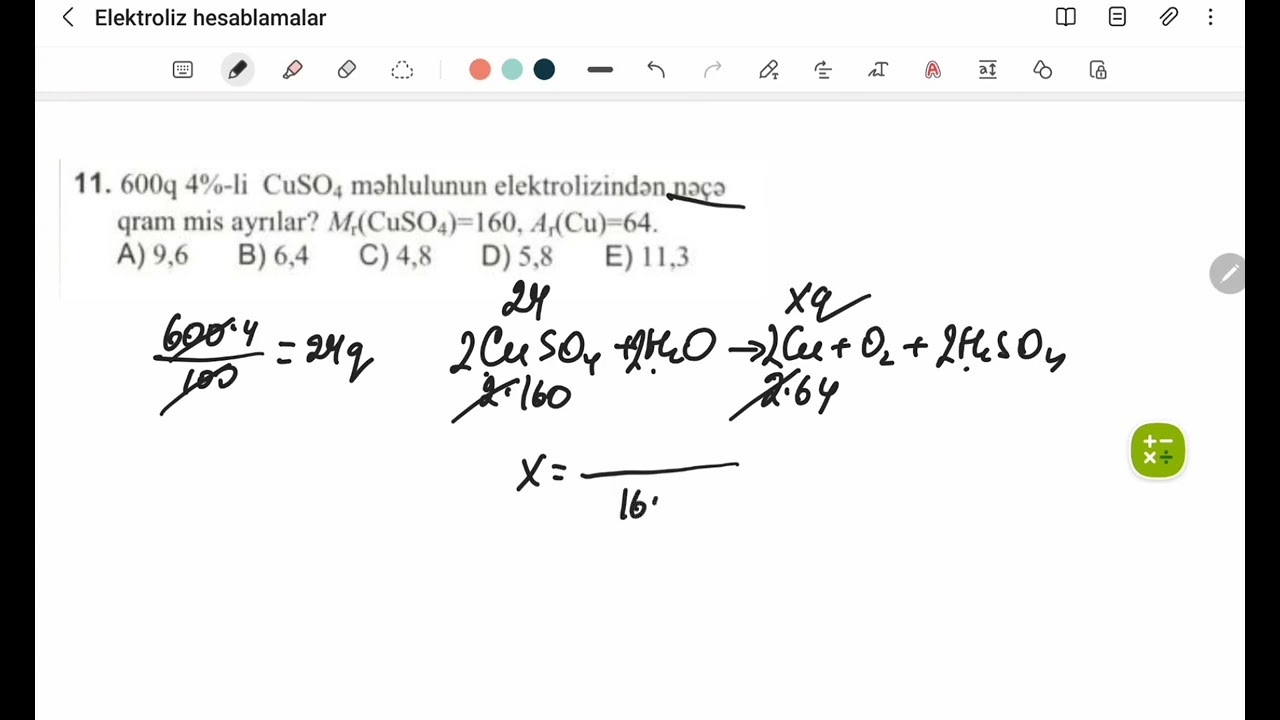 Elektroliz hesablamalar
11. 600q 4%-li CuSO₄ məhlulunun elektrolizindən neçə
qram mis ayrılar? Mᵣ(CuSO₄)=160, Aᵣ(Cu)=64.
A) 9,6 B) 6,4 C) 4,8 D) 5,8 E) 11,3
24 xq
600·4
100
= 24q
2CuSO₄ + 2H₂O → 2Cu + O₂ + 2H₂SO₄
2·160 2·64
X =
16